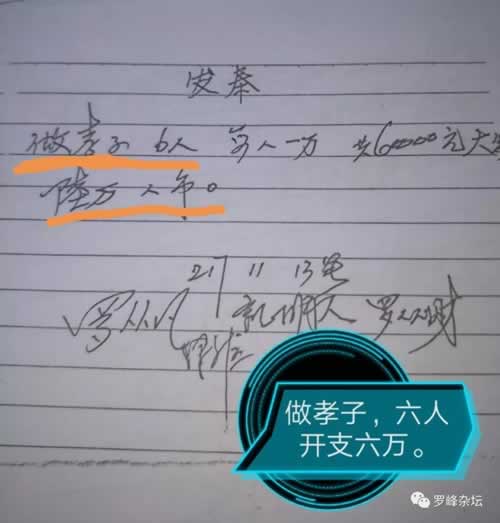 发奉
做孝子 6人 每人一万 共60000元大写
陆万人币。
217 11 13号
做孝子，六人
开支六万。
罗峰杂坛